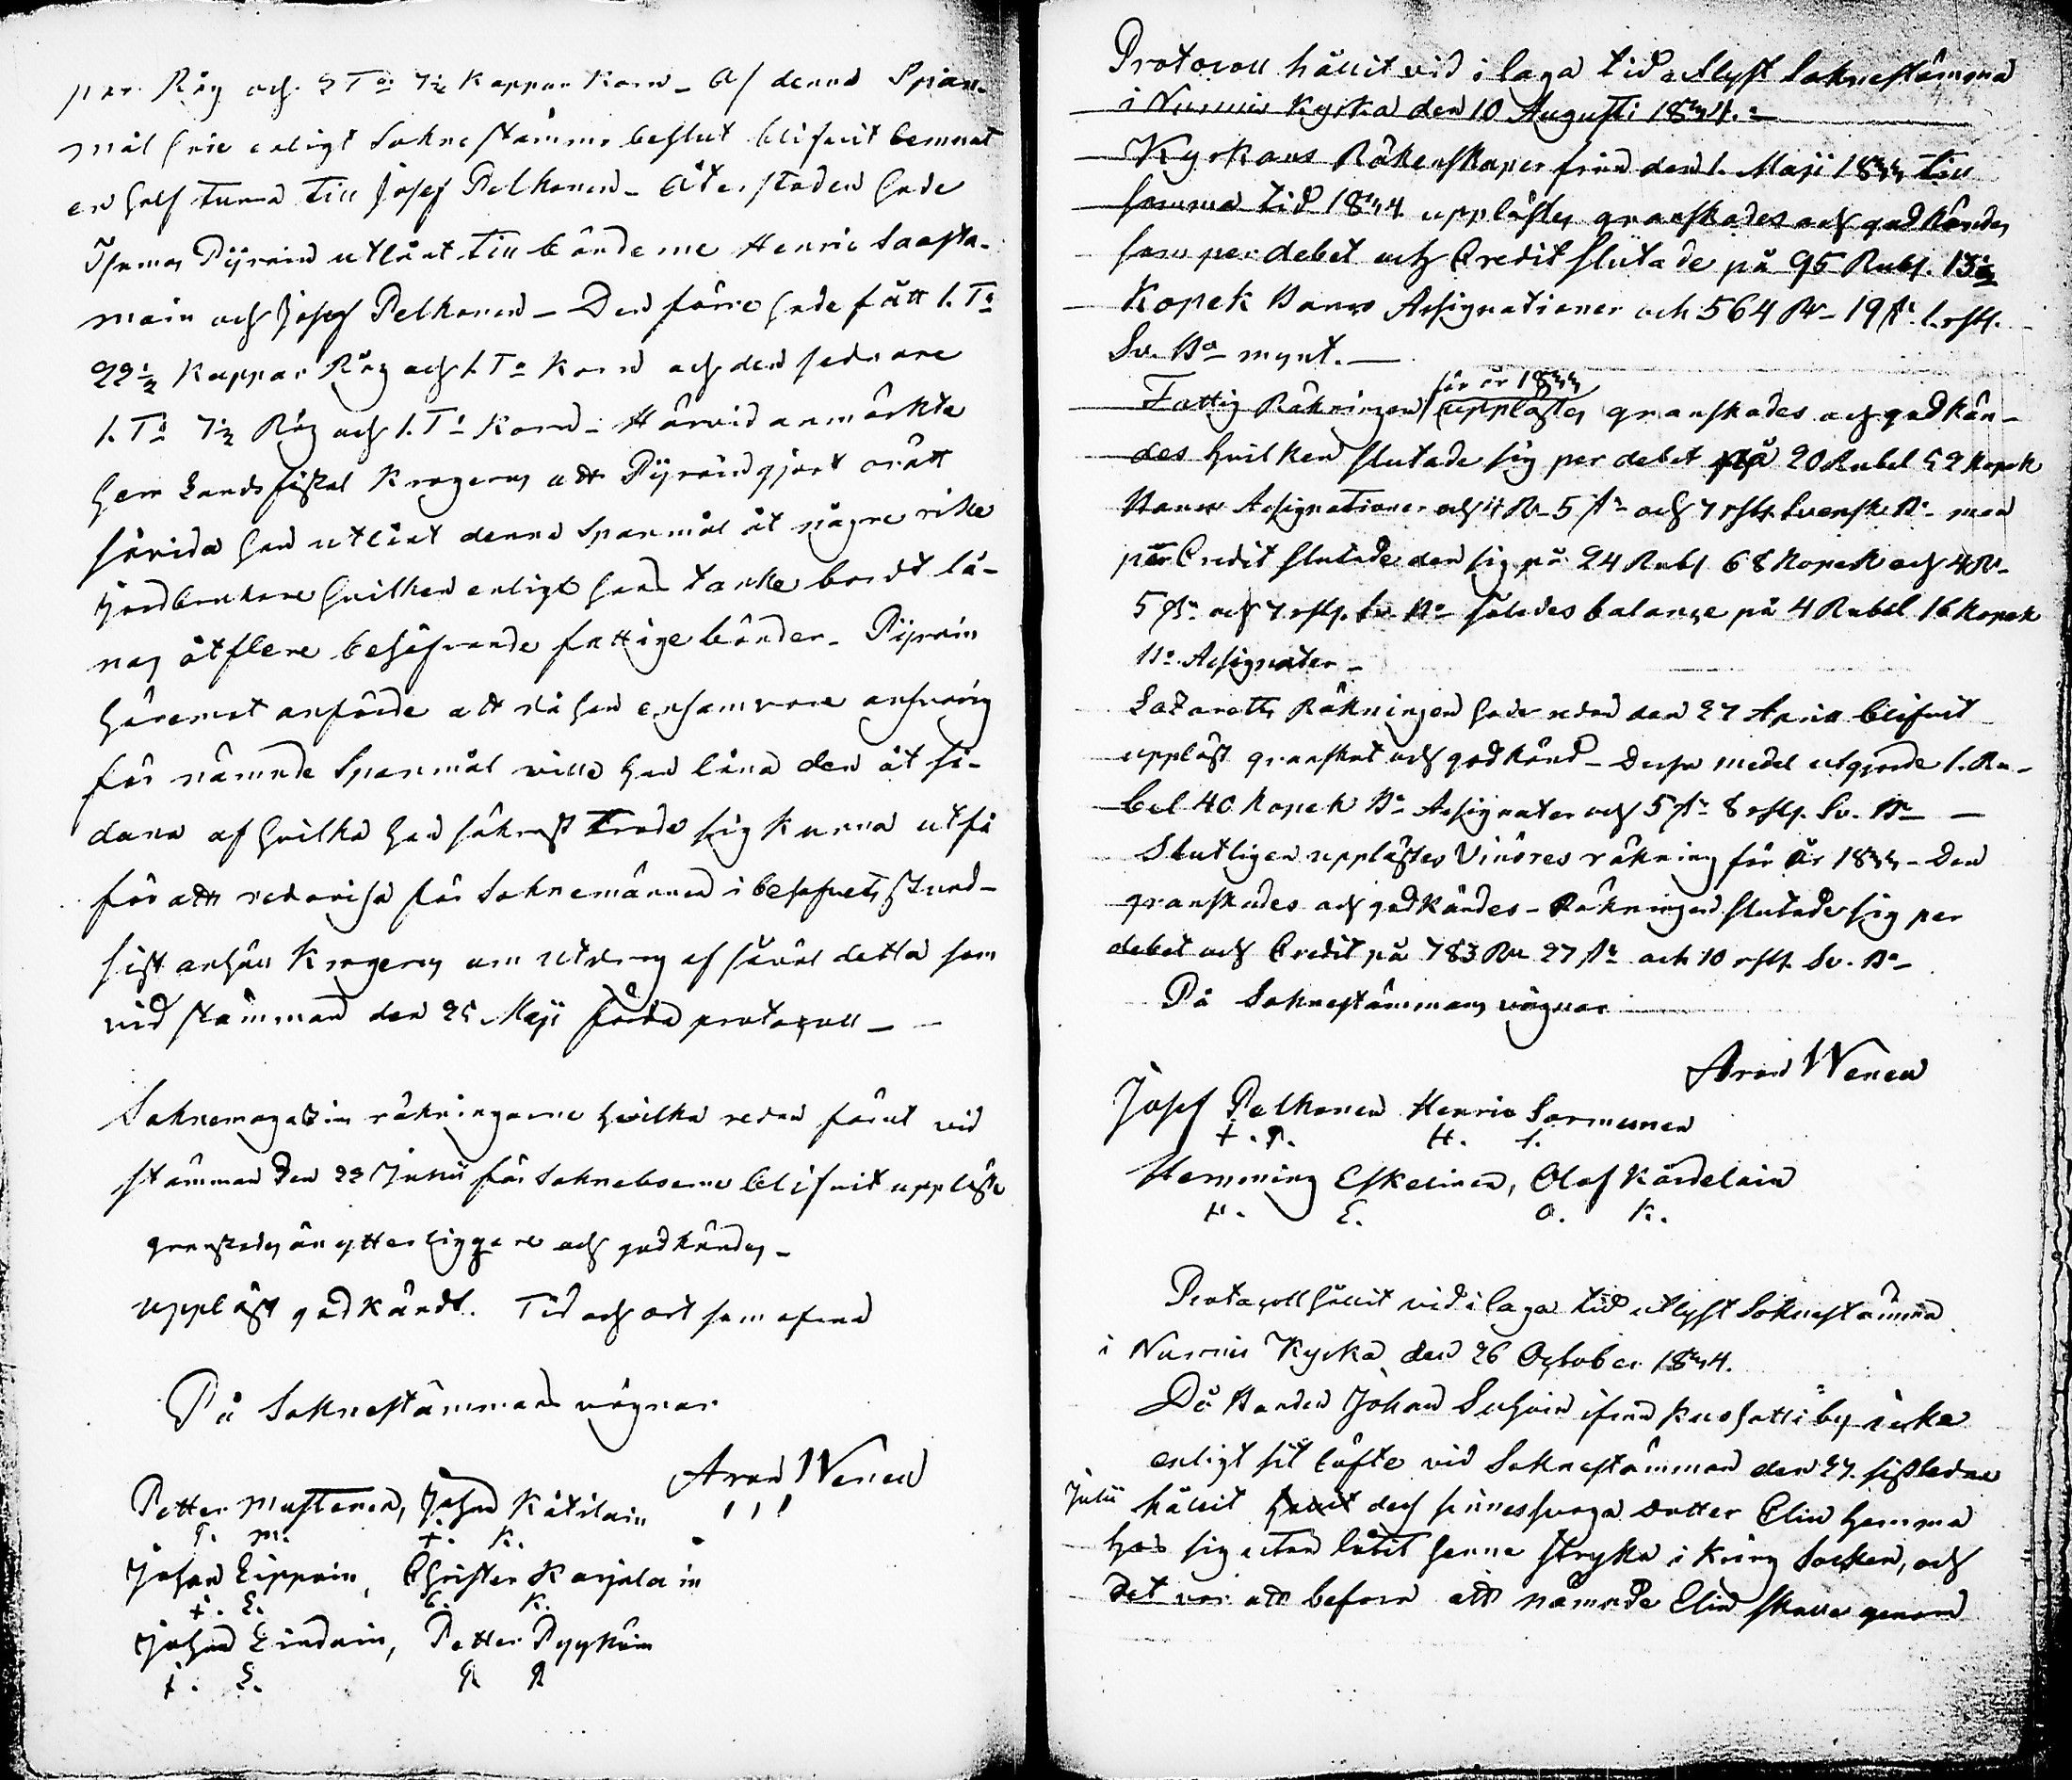 par Råg och 2 T:r 7½ Kappar Korn – Af denna Span-
mål hade enligt Sokne stämmo beslut blifvit lemnat
en half tunna till Josef Pelkonen – Återstoden hade
Pÿräin utlånt till bönderne Henric Saasta-
main och Josef Pelkonen – Den förre hade fått 1. T:a
22½ Kappar Råg och 1. T:a Korn och den sednare
1. T:a 7½ Råg och 1. T:a Korn – Härvid anmärkte
herr Landsfiskal Krogerus att Pÿräin gjort orätt
såvida han utlånt denna Spanmål åt några rike
jordbrukare hvilken enligt hans tanke bordt lå-
nas åt flere behöfvande fattige bönder – Pÿräin
häremot anförde att då han ensam vore ansvarig
för nämnde Spanmål ville han låna den åt så-
dana af hvilka han säkrast trodde sig kunna utfå
för att redovisa för Soknemännen i behofvets stund –
sist anhöll Krogerus om utdrag af såväl detta som
vid stämman den 25 Maji förda protocoll – –
Soknemagazins räkningarne hvilka redan förut vid
stämman den 22 Junii för Sokneboerne blifvit uppläste
granskades än ytterliggare och godkändes –
Uppläst godkändt. Tid och ort som ofvan
På Soknestämmans vägnar
Aron Wenen
Petter Mustonen, Johan Kätilain
P. M. J. K.
Johan Lippoin, Christer Karjalain
J. L. C. K.
Johan Lindain, Petter Pyyköin
J. L. P. P.
Protocoll hållit vid i laga tid utlyst Soknestämma
i Nurmis Kyrka den 10 Augusti 1844. –
Kyrkans Räkenskaper från den 1. Maji 1843 till
samma tid 1844 upplästes granskades och godkändes
som per debet och Credit slutade på 95 Rub. 13½
Kopek Banco Assignationer och 564 Rr – 19 s. 1. rst.
Sv. B:o mynt. –
för år 1843
Fattig Räkningen upplästes granskades och godkän-
des hvilken slutade sig per debet på 20 Rubel 52 Kopek
Banco Assignationer och 4 Rr – 5 s. och 7 rst. Svensk B:o – men
per Credit slutade den sig på 24 Rub. 68 Kopek och 4 Rr –
5 s. och 7 rst. Sv. B:o – således balance på 4 Rubel 16 Kopek
B:o Assignater –
Lazaretts Räkningen hade redan den 27 April blifvit
uppläst granskat och godkänd – Dessa medel utgjorde 1. Ru-
bel 40 Kopek B:o Assignater och 5 s. 8 rst. Sv. B:o –
Slutligen upplästes Vinöres räkning för år 1843 – Den
granskades och godkändes – Räkningen slutade sig per
debet och Credit på 783 Rr 27 s. och 10 rst. Sv. B:o –
På Soknestämmans vägnar
Aron Wenen
Josef Pelkonen Henric Sormunen
J. P. H. S.
Hemming Eskelinen, Olof Kärdelain
H. E. O. K.
Protocoll hållit vid i laga tid utlyst Soknestämma
i Nurmis Kyrka den 26 October 1844.
Då Bonden Johan Suhoin ifrån Kuohatti by icke
enligt sit löfte vid Soknestämman den 27. sistledne
Julii hållit dess sinnessvaga dotter Elin hemma
hos sig utan låtit henne stryka i kring Socken, och
det var att befara att nämnde Elin skulle genom